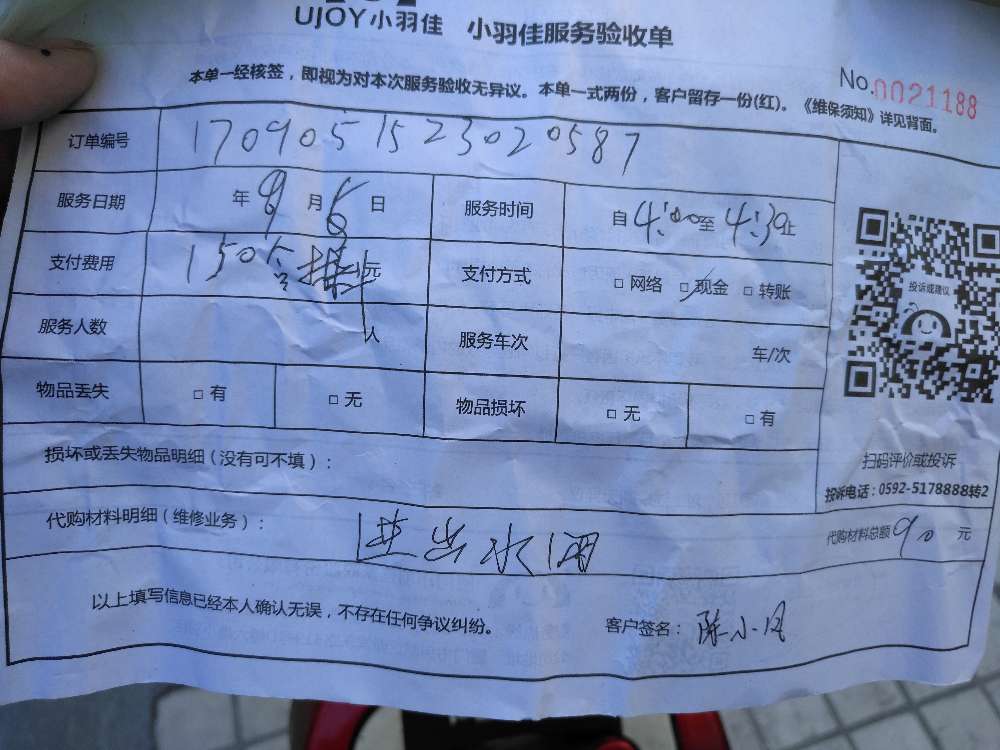 UJOY小羽佳 小羽佳服务验收单
本单一经核签，即视为对本次服务验收无异议。本单一式两份，客户留存一份(红)。《维保须知》详见背面。
No.0021188
订单编号 1709051523020587
服务日期 年 9 月 6 日 服务时间 自4:00至4:30止
支付费用 150 元 支付方式 □ 网络 □ 现金 □ 转账
服务人数 人 服务车次 车/次
物品丢失 □ 有 □ 无 物品损坏 □ 无 □ 有
投诉或建议
损坏或丢失物品明细（没有可不填）：
扫码评价或投诉
投诉电话：0592-5178888转2
代购材料明细（维修业务）： 进出水阀 代购材料总额90 元
以上填写信息已经本人确认无误，不存在任何争议纠纷。 客户签名： 陈小凤